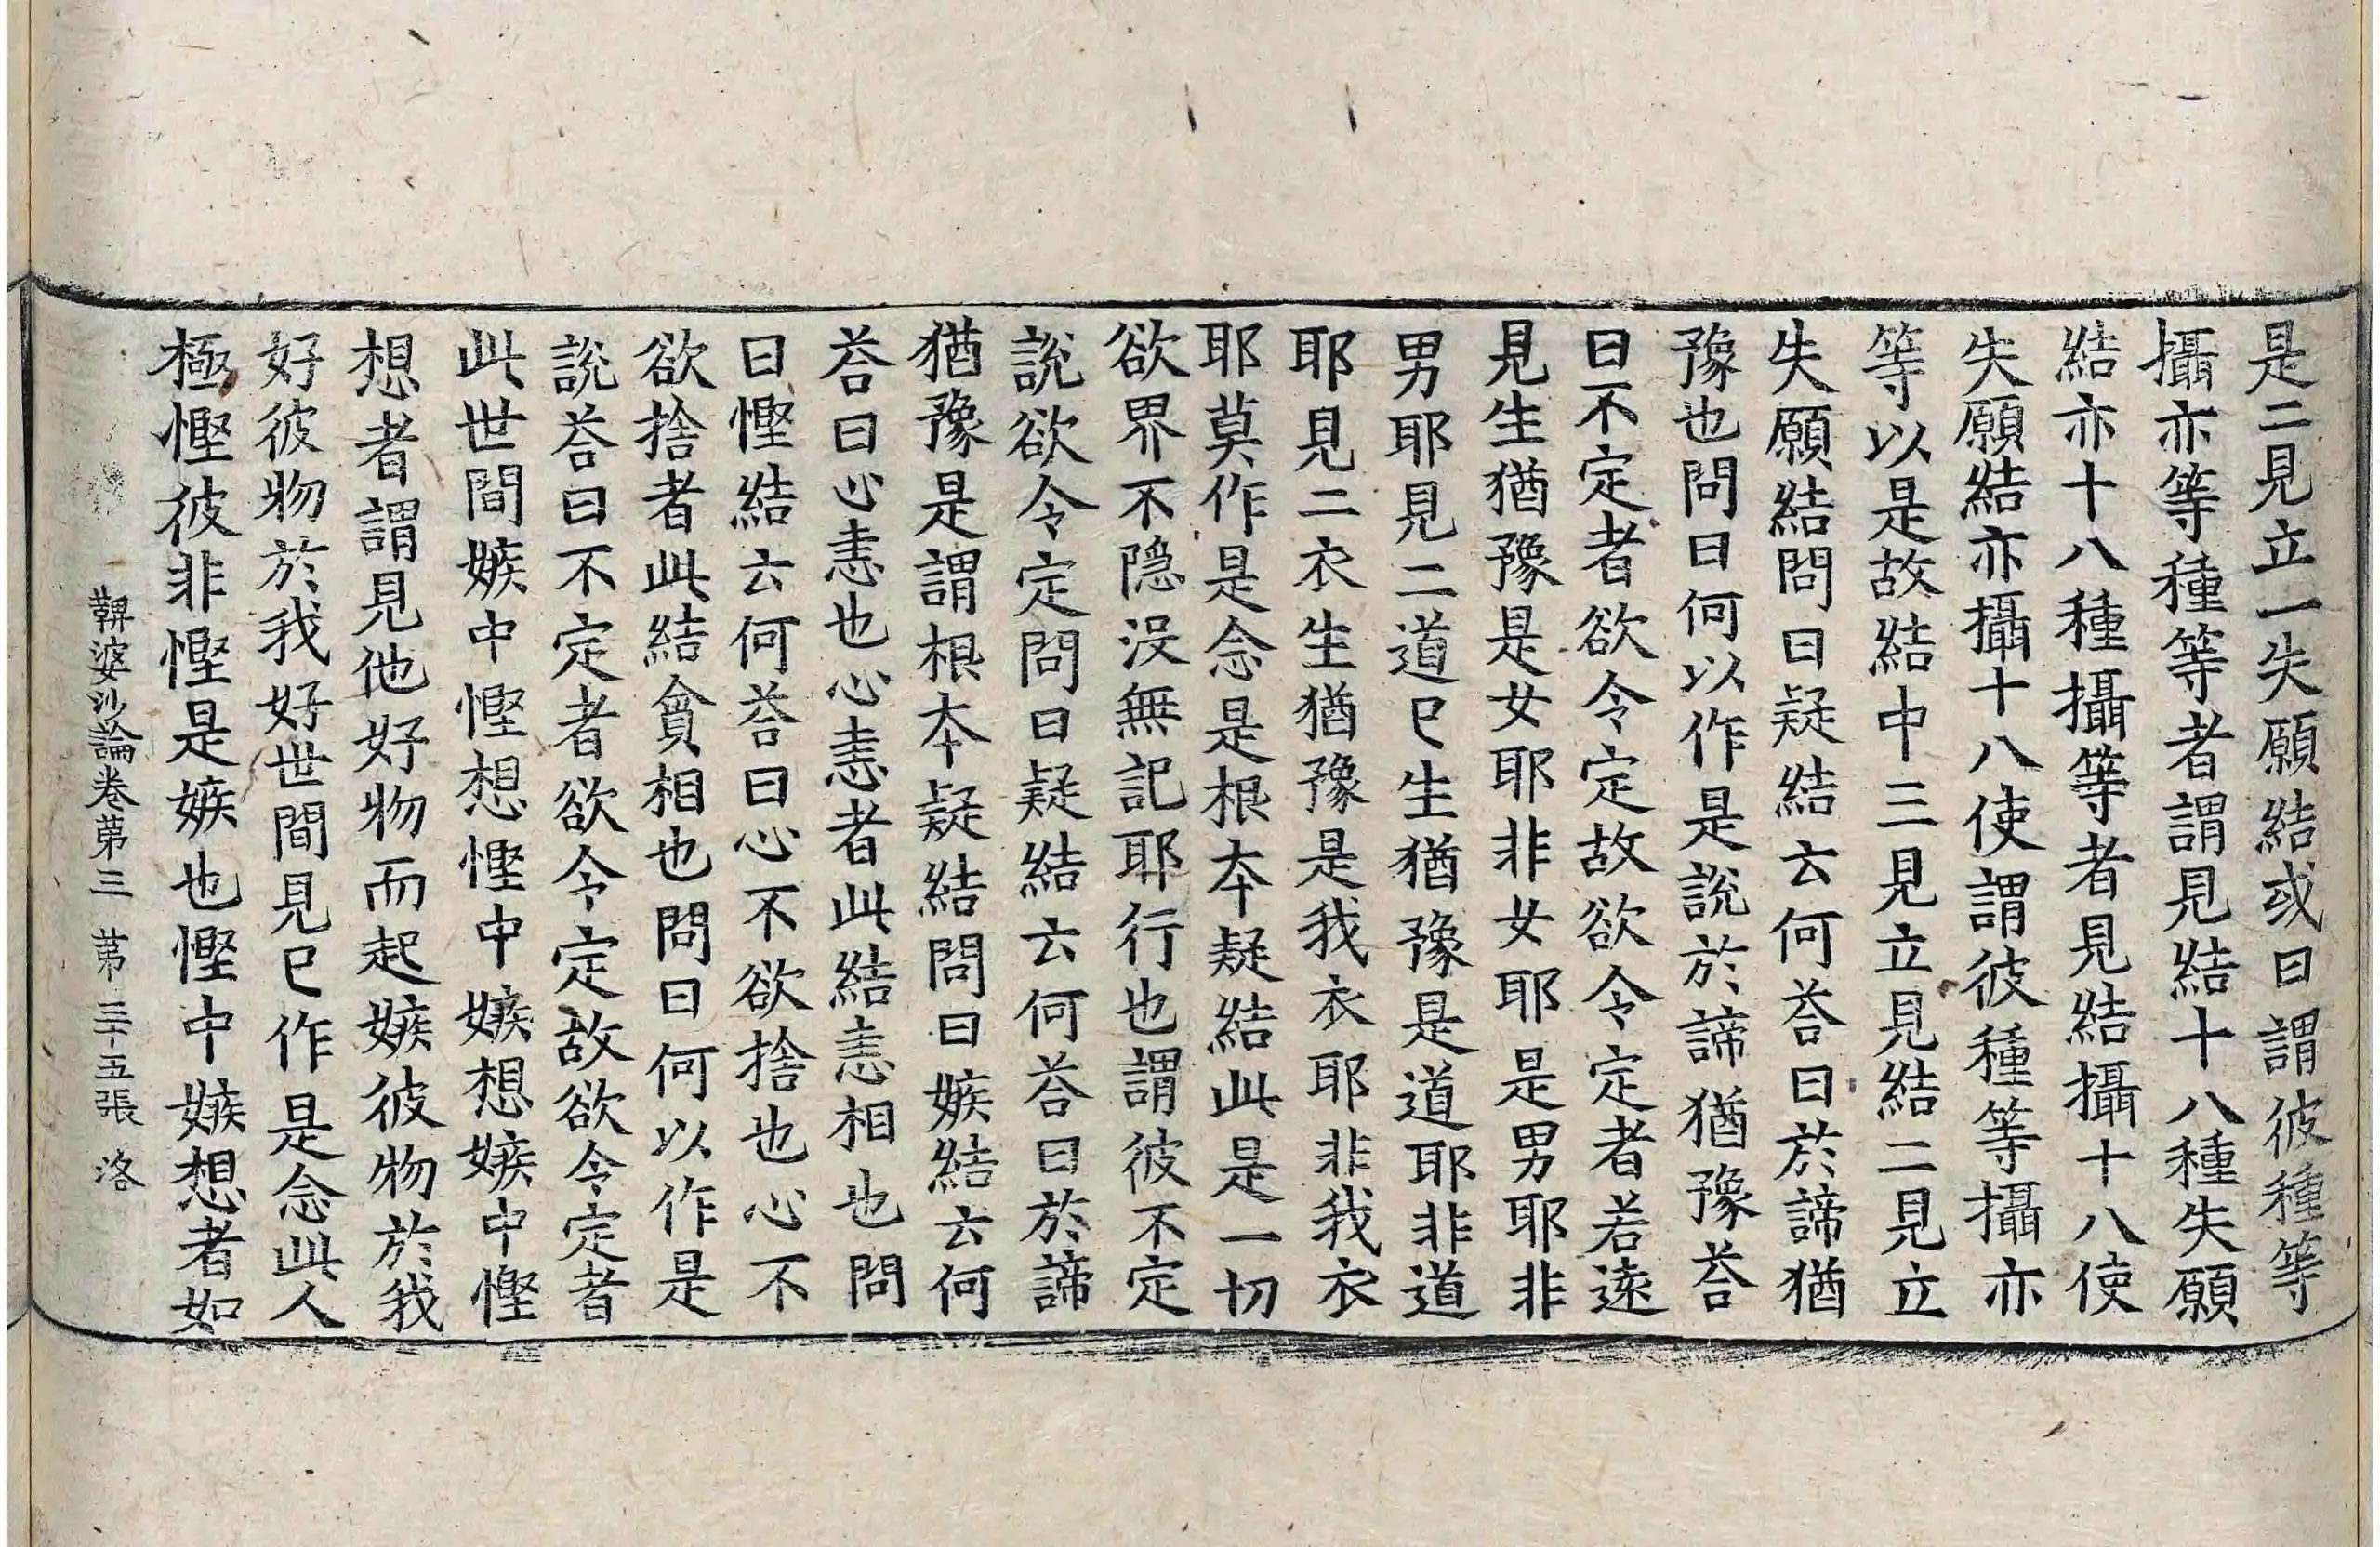 是二見立一失願結或曰謂彼種等
攝亦等種等者謂見結十八種失願
結亦十八種攝等者見結攝十八使
失願結亦攝十八使謂彼種等攝亦
等以是故結中三見立見結二見立
失願結問曰疑結云何荅曰於諦猶
豫也問曰何以作是說於諦猶豫荅
曰不定者欲令定故欲令定者若遠
見生猶豫是女耶非女耶是男耶非
男耶見二道已生猶豫是道耶非道
耶見二衣生猶豫是我衣耶非我衣
耶莫作是念是根本疑結此是一切
欲界不隐没無記耶行也謂彼不定
說欲令定問曰疑結云何荅曰於諦
猶豫是謂根本疑結問曰嫉結云何
荅曰心恚也心恚者此結恚相也問
曰慳結云何荅曰心不欲捨也心不
欲捨者此結貪相也問曰何以作是
說荅曰不定者欲令定故欲令定者
此世間嫉中慳想慳中嫉想嫉中慳
想者謂見他好物而起嫉彼物於我
好彼物於我好世間見已作是念此人
極慳彼非慳是嫉也慳中嫉想者如
鞞婆沙論卷第三 第三十五張 洛